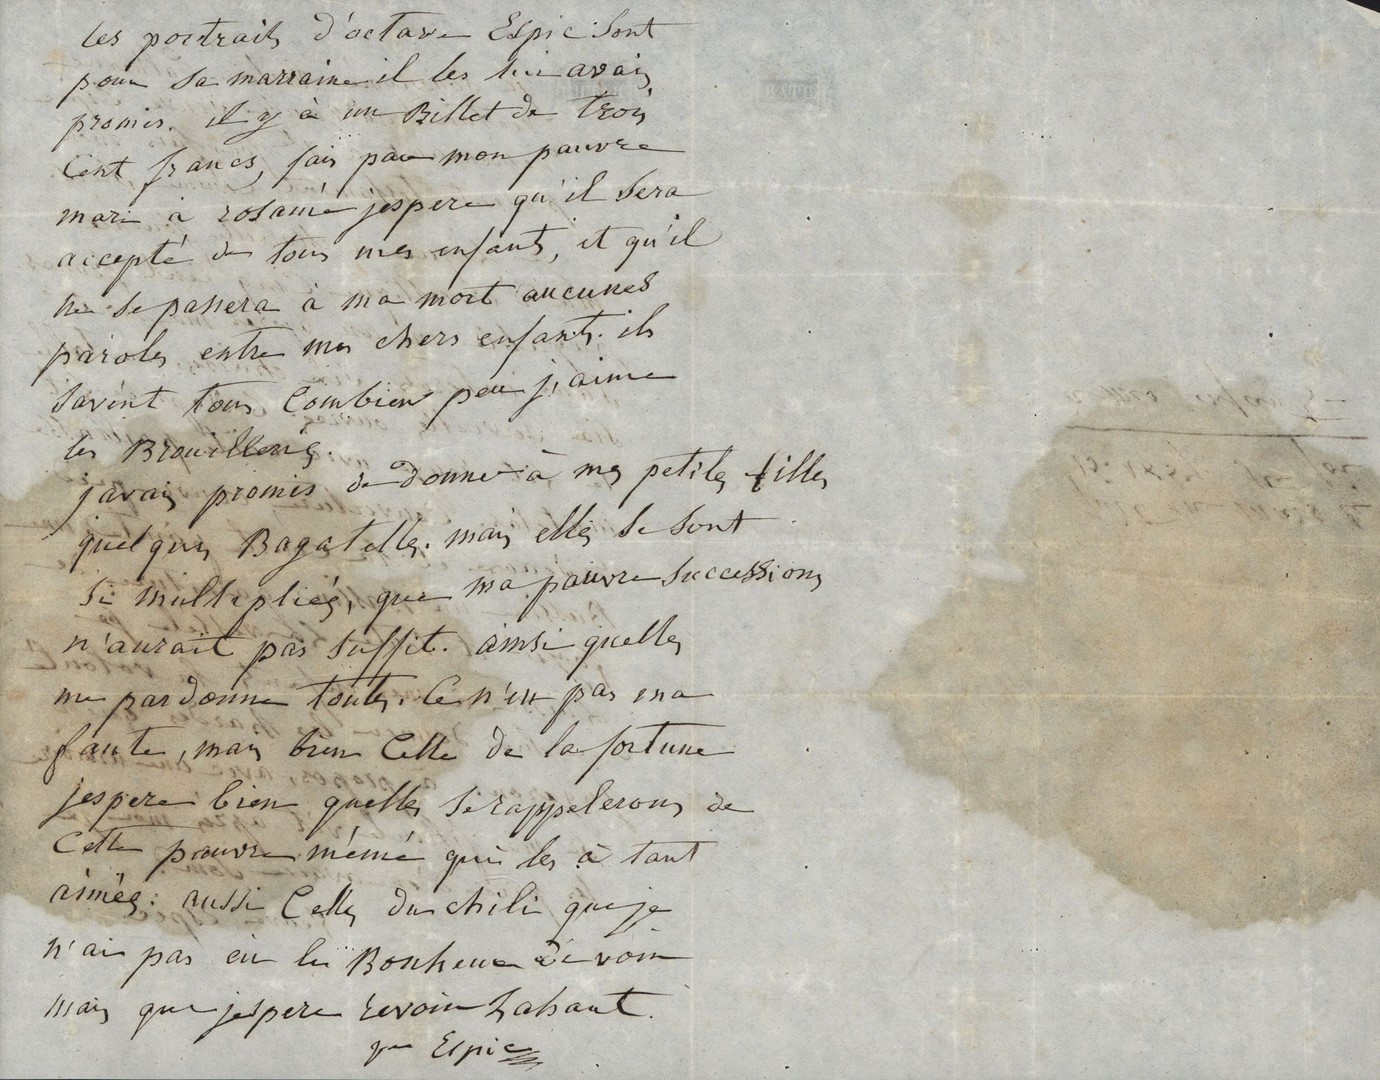 les portraits d'octave Espic sont
pour sa marraine il les lui avais
promis. il y à un Billet de trois
Cent francs, fais par mon pauvre
mari à rosamé jespere qu'il sera
accepté de tous mes enfants, et qu'il
ne se passera à ma mort aucunes
paroles entre mes chers enfants. ils
savent tous Combien peu j'aime
les Brouilleries.
javais promis de donner à mes petites filles
quelques Bagatelles. mais elles se sont
si multipliés, que ma pauvre successions
n'aurait pas suffit. ainsi quelles
me pardonne toutes. Ce n'est pas ma
faute, mais bien Celle de la fortune
jespere bien quelles se rappelerons de
Cette pauvre mémé qui les à tant
aimés: aussi Celles du chili que je
n'ai pas eu le Bonheur de voir
mais que jespere revoir Lahaut.
Espic